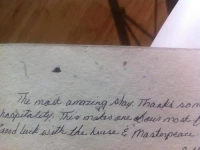 The most amazing stay. Thanks som
hospitality. This makes one of our most f
Good luck with the house & Masterpeace